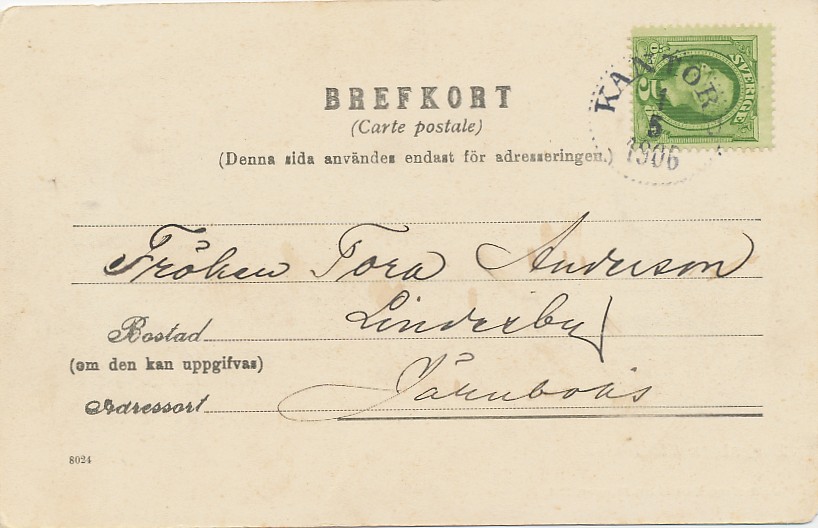 BREFKORT
(Carte postale)
(Denna sida användes endast för adresseringen.)
SVERIGE
5
KANTORP
1
5
1906
Fröken Tora Anderson
Bostad Linderby
(om den kan uppgifvas)
Adressort Järnboås
8024